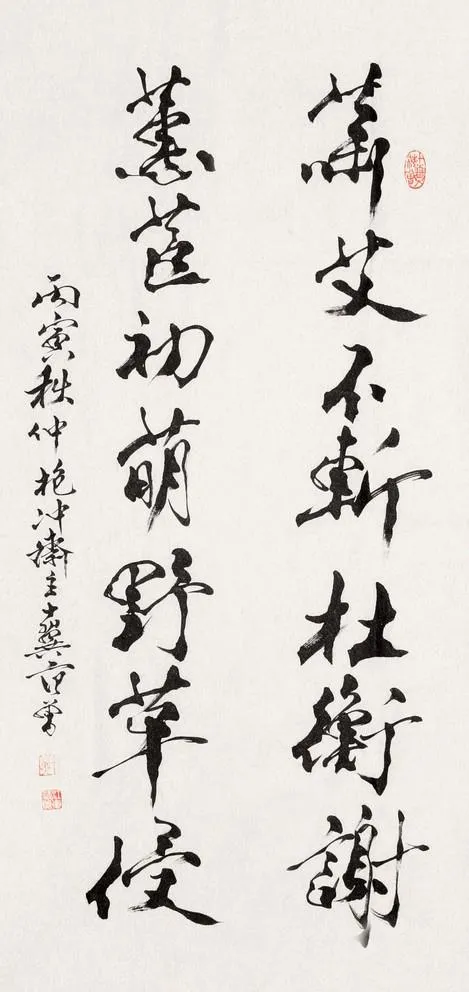 蕭艾不斬杜衡謝
蕙茝初萌野草侵
丙寅秋仲抱冲齋主十翼范曾